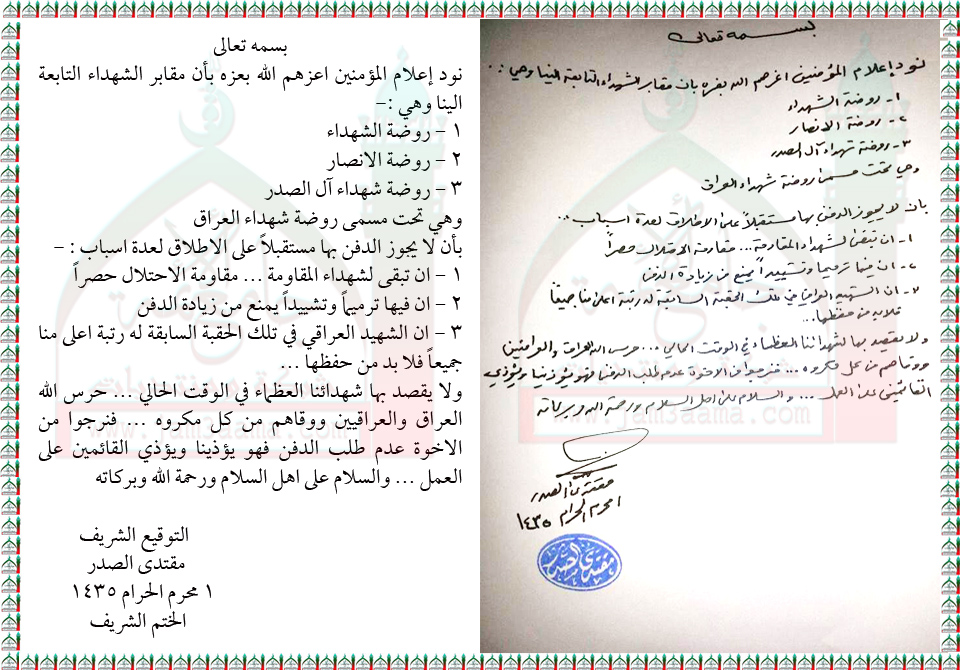 بسمه تعالى
نود إعلام المؤمنين اعزهم الله بعزه بأن مقابر الشهداء التابعة
الينا وهي :-
١ - روضة الشهداء
٢ - روضة الانصار
٣ - روضة شهداء آل الصدر
وهي تحت مسمى روضة شهداء العراق
بأن لا يجوز الدفن بها مستقبلاً على الاطلاق لعدة اسباب : -
١ - ان تبقى لشهداء المقاومة ... مقاومة الاحتلال حصراً
٢ - ان فيها ترميماً وتشييداً يمنع من زيادة الدفن
٣ - ان الشهيد العراقي في تلك الحقبة السابقة له رتبة اعلى منا
جميعاً فلا بد من حفظها ...
ولا يقصد بها شهدائنا العظماء في الوقت الحالي ... حرس الله
العراق والعراقيين ووقاهم من كل مكروه ... فنرجوا من
الاخوة عدم طلب الدفن فهو يؤذينا ويؤذي القائمين على
العمل ... والسلام على اهل السلام ورحمة الله وبركاته
التوقيع الشريف
مقتدى الصدر
١ محرم الحرام ١٤٣٥
الختم الشريف
بسمه تعالى
نود إعلام المؤمنين اعزهم الله بعزه بان مقابر الشهداء التابعة الينا وهي :..
١- روضة الشهداء
٢- روضة الانصار
٣- روضة شهداء آل الصدر
وهي تحت مسمى روضة شهداء العراق
بان لا يجوز الدفن بها مستقبلاً على الاطلاق لعدة اسباب ..
١- ان تبقى لشهداء المقاومة ... مقاومة الاحتلال حصراً
٢- ان فيها ترميماً وتشييداً يمنع من زيادة الدفن
٣- ان الشهيد العراقي في تلك الحقبة السابقة له رتبة اعلى منا جميعاً
فلابد من حفظها...
ولا يقصد بها شهدائنا العظماء في الوقت الحالي ... حرس الله العراق والعراقيين
ووقاهم من كل مكروه ... فنرجوا من الاخوة عدم طلب الدفن فهو يؤذينا ويؤذي
القائمين على العمل ... والسلام على اهل السلام ورحمة الله وبركاته
مقتدى الصدر
١ محرم الحرام ١٤٣٥
مقتدى الصدر
www.jam3aama.com